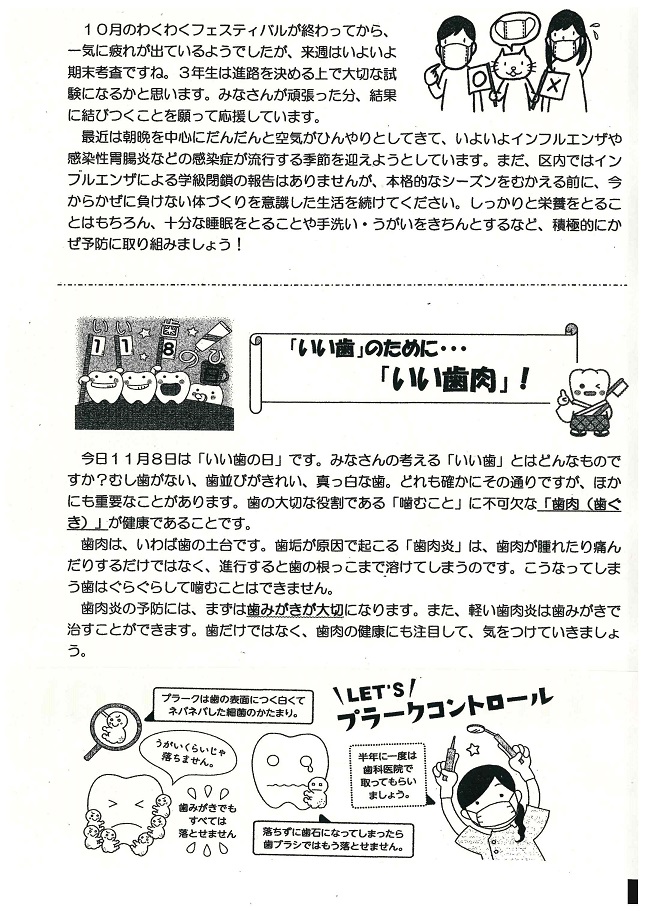 １０月のわくわくフェスティバルが終わってから、
一気に疲れが出ているようでしたが、来週はいよいよ
期末考査ですね。３年生は進路を決める上で大切な試
験になるかと思います。みなさんが頑張った分、結果
に結びつくことを願って応援しています。
最近は朝晩を中心にだんだんと空気がひんやりとしてきて、いよいよインフルエンザや
感染性胃腸炎などの感染症が流行する季節を迎えようとしています。まだ、区内ではイン
フルエンザによる学級閉鎖の報告はありませんが、本格的なシーズンをむかえる前に、今
からかぜに負けない体づくりを意識した生活を続けてください。しっかりと栄養をとるこ
とはもちろん、十分な睡眠をとることや手洗い・うがいをきちんとするなど、積極的にか
ぜ予防に取り組みましょう！
いい歯の日
１１８
「いい歯」のために・・・
「いい歯肉」！
今日１１月８日は「いい歯の日」です。みなさんの考える「いい歯」とはどんなもので
すか？むし歯がない、歯並びがきれい、真っ白な歯。どれも確かにその通りですが、ほか
にも重要なことがあります。歯の大切な役割である「噛むこと」に不可欠な「歯肉（歯ぐ
き）」が健康であることです。
歯肉は、いわば歯の土台です。歯垢が原因で起こる「歯肉炎」は、歯肉が腫れたり痛ん
だりするだけではなく、進行すると歯の根っこまで溶けてしまうのです。こうなってしま
う歯はぐらぐらして噛むことはできません。
歯肉炎の予防には、まずは歯みがきが大切になります。また、軽い歯肉炎は歯みがきで
治すことができます。歯だけではなく、歯肉の健康にも注目して、気をつけていきましょ
う。
LET'S
プラークコントロール
プラークは歯の表面につく白くて
ネバネバした細菌のかたまり。
うがいくらいじゃ
落ちません。
歯みがきでも
すべては
落とせません
落ちずに歯石になってしまったら
歯ブラシではもう落とせません。
半年に一度は
歯科医院で
取ってもらい
ましょう。